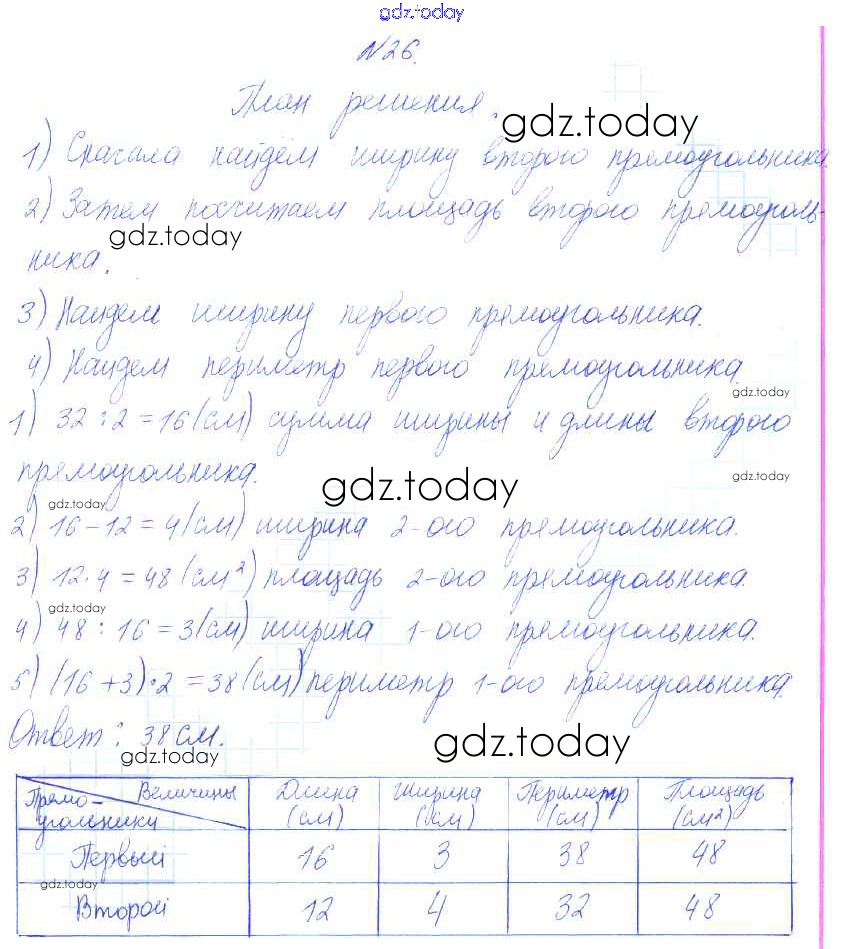 gdz.today
№26.
План решения.
gdz.today
1) Сначала найдём ширину второго прямоугольника.
2) Затем посчитаем площадь второго прямоуголь-
gdz.today
ника.
3) Найдем ширину первого прямоугольника.
4) Найдем периметр первого прямоугольника.
gdz.today
1) 32 : 2 = 16 (см) сумма ширины и длины второго
прямоугольника.
gdz.today
gdz.today
gdz.today
2) 16 - 12 = 4 (см) ширина 2-ого прямоугольника.
3) 12 · 4 = 48 (см²) площадь 2-ого прямоугольника.
gdz.today
4) 48 : 16 = 3 (см) ширина 1-ого прямоугольника.
5) (16 + 3) · 2 = 38 (см) периметр 1-ого прямоугольника.
Ответ: 38 см.
gdz.today
gdz.today
Прямо-угольники Величины Длина (см) Ширина (см) Периметр (см) Площадь (см²)
Первый 16 3 38 48
gdz.today
Второй 12 4 32 48